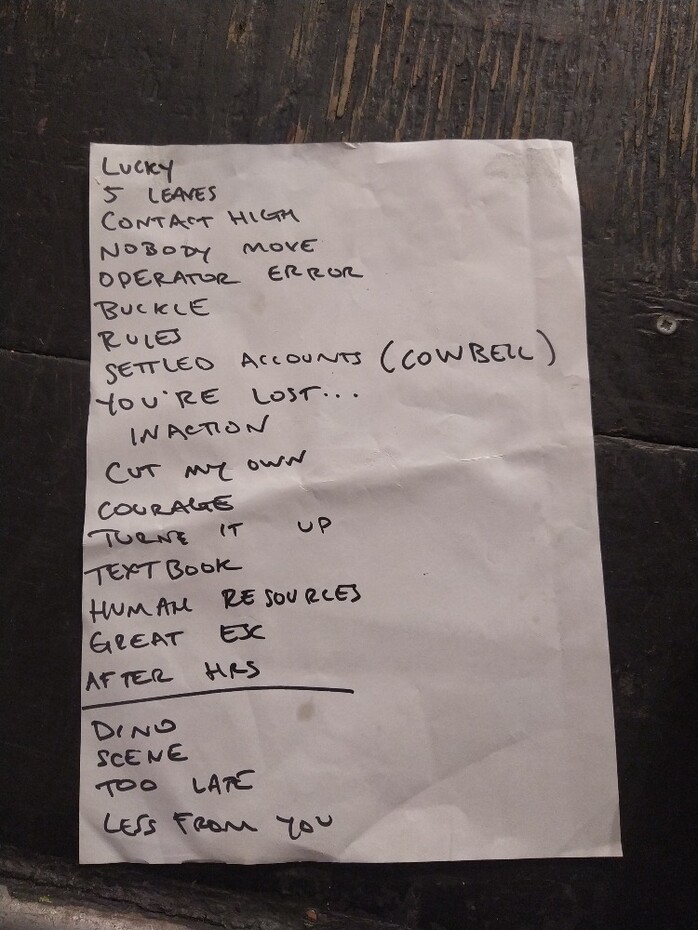 LUCKY
5 LEAVES
CONTACT HIGH
NOBODY MOVE
OPERATOR ERROR
BUCKLE
RULES
SETTLED ACCOUNTS (COWBELL)
YOU'RE LOST...
INACTION
CUT MY OWN
COURAGE
TURNE IT UP
TEXTBOOK
HUMAN RESOURCES
GREAT ESC
AFTER HRS
DINO
SCENE
TOO LATE
LESS FROM YOU